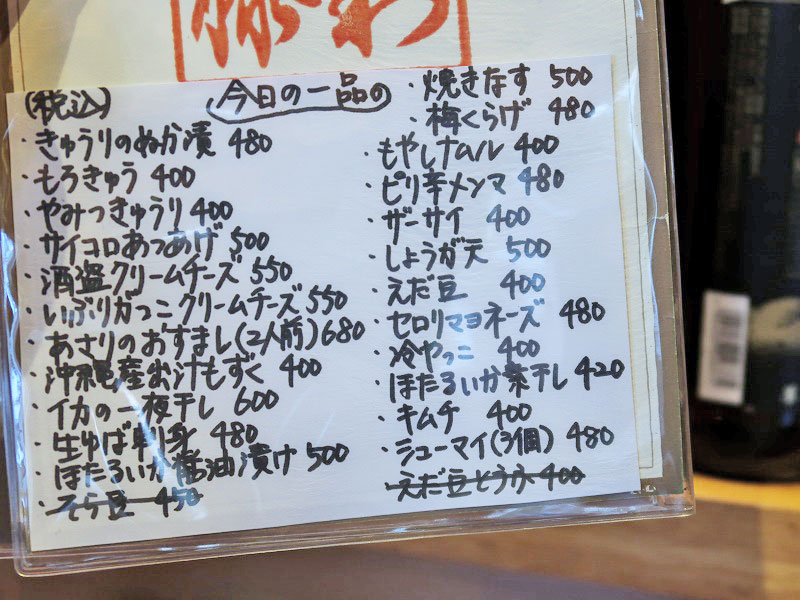 (税込)
今日の一品の
・きゅうりのぬか漬 480
・もろきゅう 400
・やみつきゅうり 400
・サイコロあつあげ 500
・酒盗クリームチーズ 550
・いぶりがっこクリームチーズ 550
・あさりのおすまし(2人前) 680
・沖縄産出汁もずく 400
・イカの一夜干し 600
・生ゆば刺身 480
・ほたるいか醤油漬け 500
・そら豆 450
・焼きなす 500
・梅くらげ 480
・もやしナムル 400
・ピリ辛メンマ 480
・ザーサイ 400
・しょうが天 500
・えだ豆 400
・セロリマヨネーズ 480
・冷やっこ 400
・ほたるいか素干し 420
・キムチ 400
・シューマイ(3個) 480
・えだ豆とうふ 400